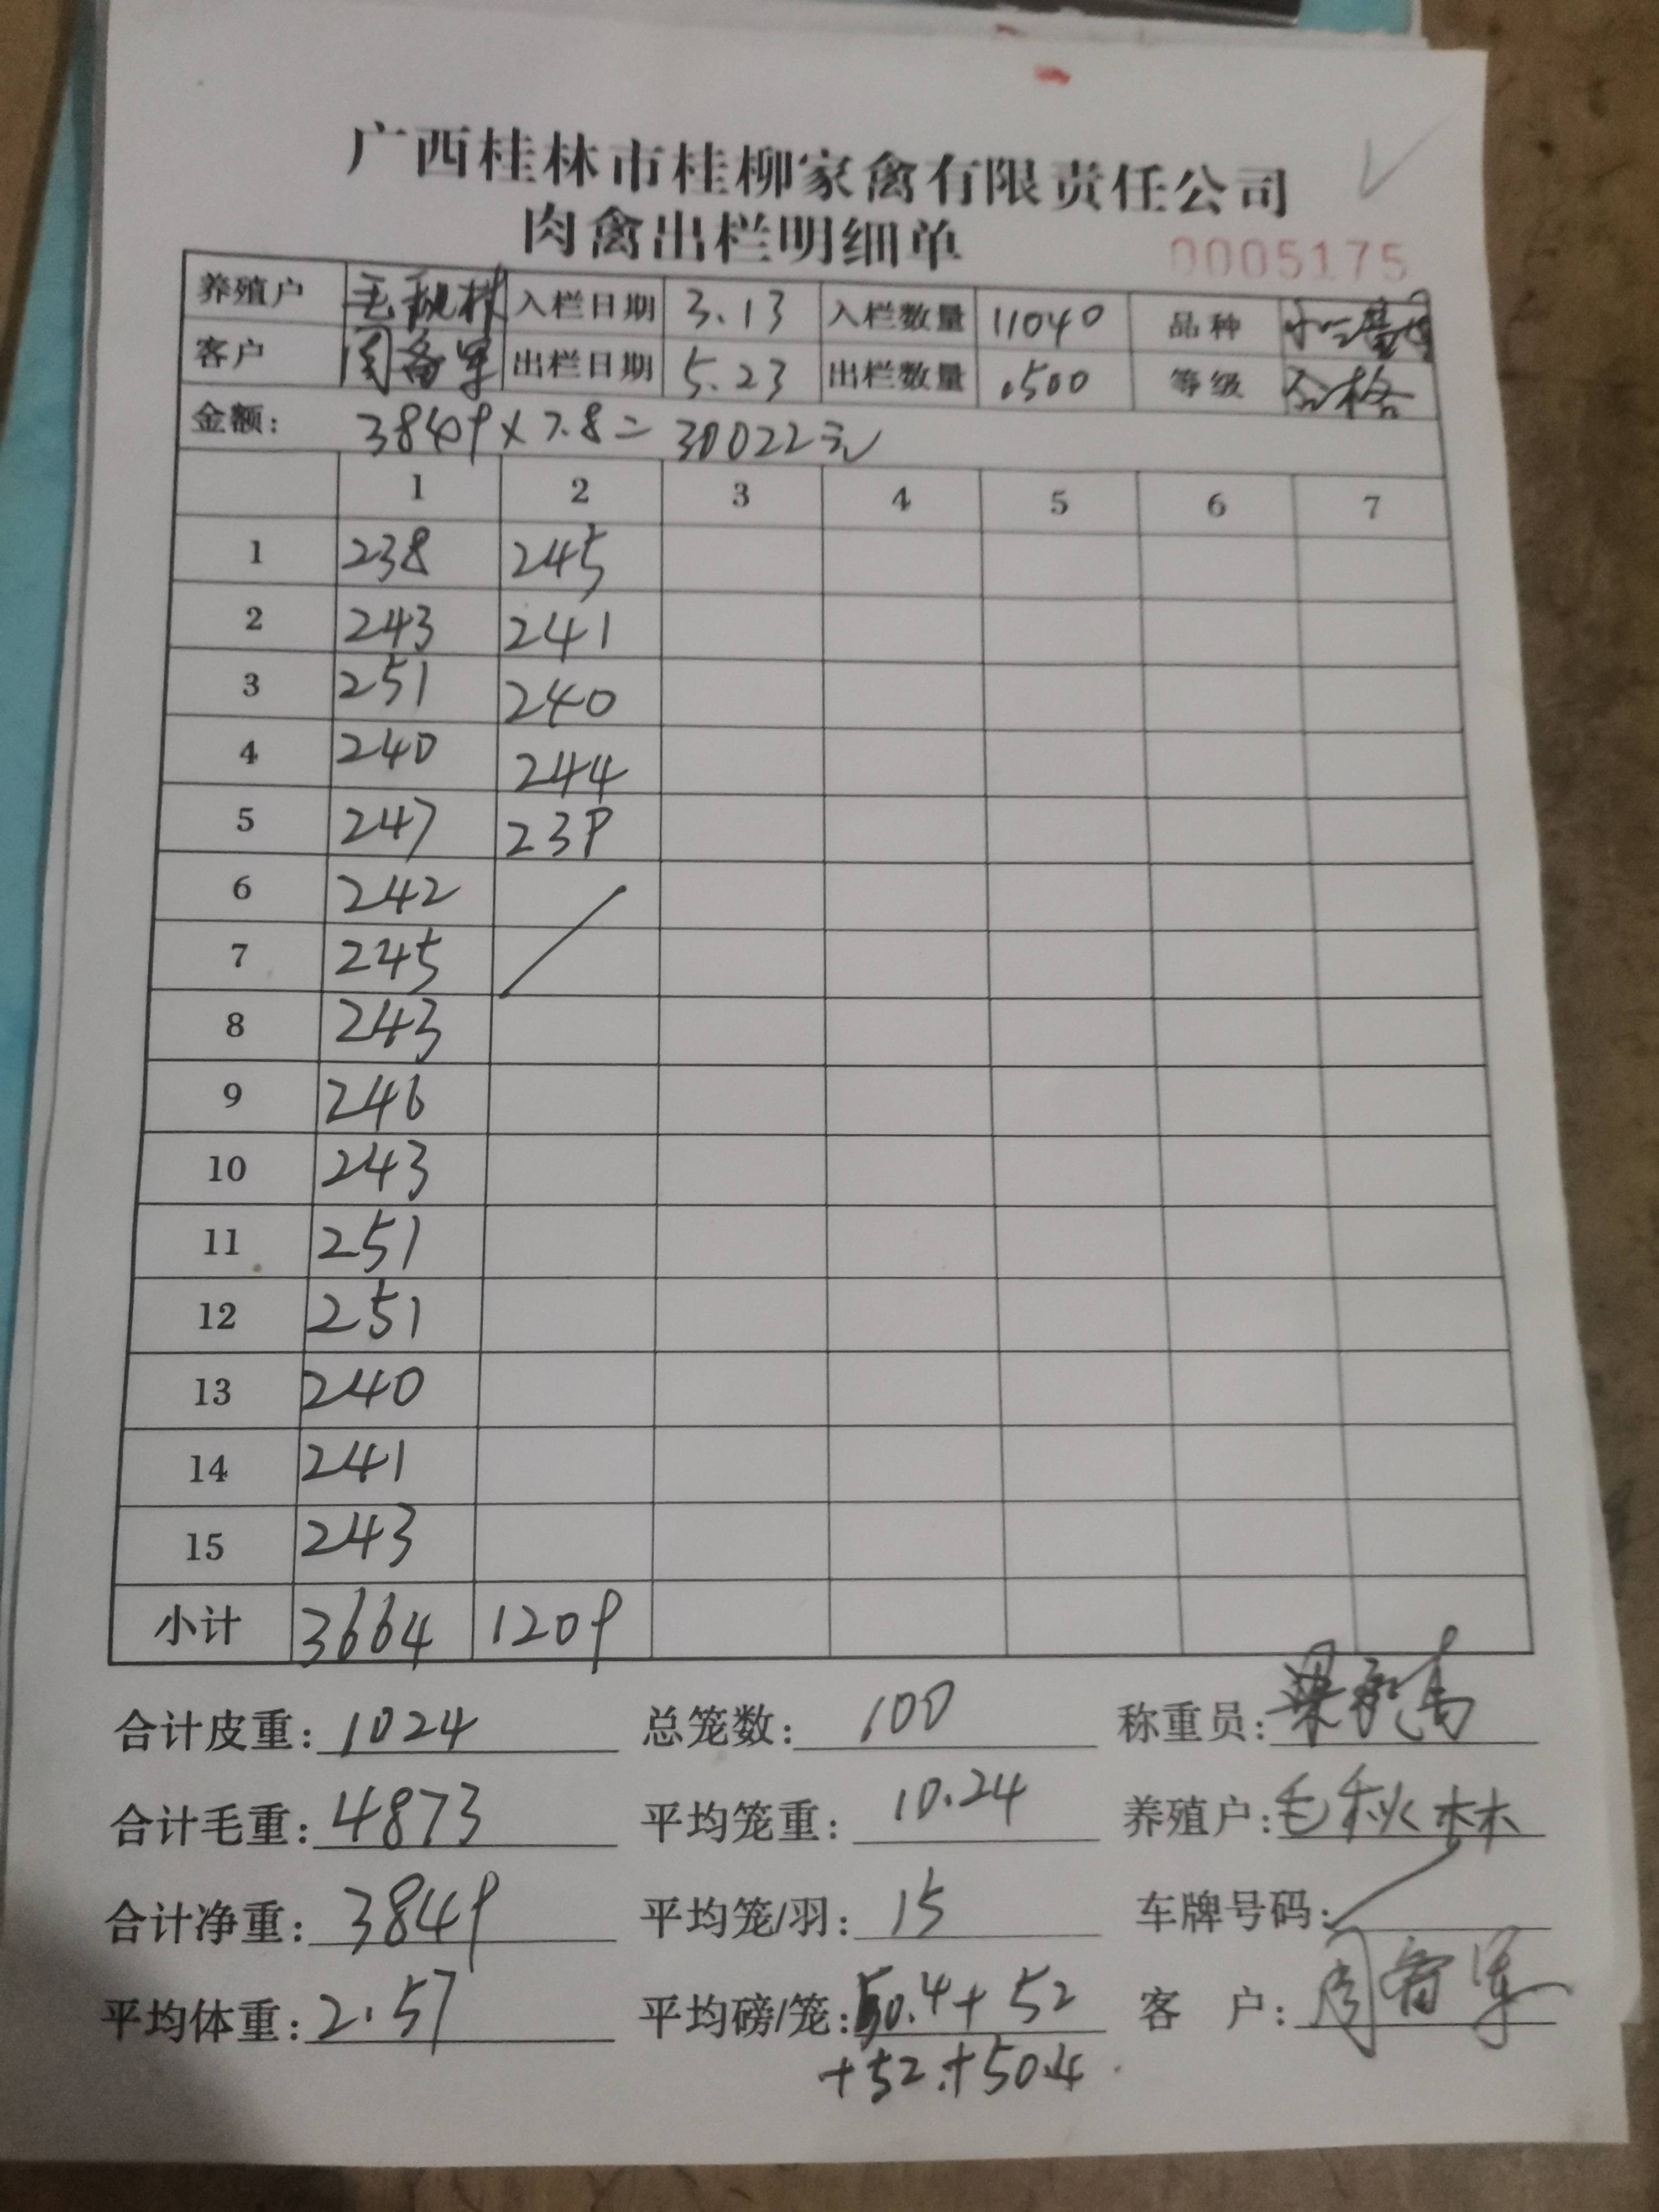 广西桂林市桂柳家禽有限责任公司
肉禽出栏明细单
0005175
养殖户 毛秋林 入栏日期 3.13 入栏数量 11040 品种
客户 出栏日期 5.23 出栏数量 1500 等级 合格
金额: 3849×7.8=30022元
1 2 3 4 5 6 7
1 238 245
2 243 241
3 251 240
4 240 244
5 247 239
6 242
7 245
8 243
9 246
10 243
11 251
12 251
13 240
14 241
15 243
小计 3664 1209
合计皮重: 1024 总笼数: 100 称重员:
合计毛重: 4873 平均笼重: 10.24 养殖户: 毛秋林
合计净重: 3849 平均笼/羽: 15 车牌号码:
平均体重: 2.57 平均磅/笼: 50.4+52 客户:
+52+50.4